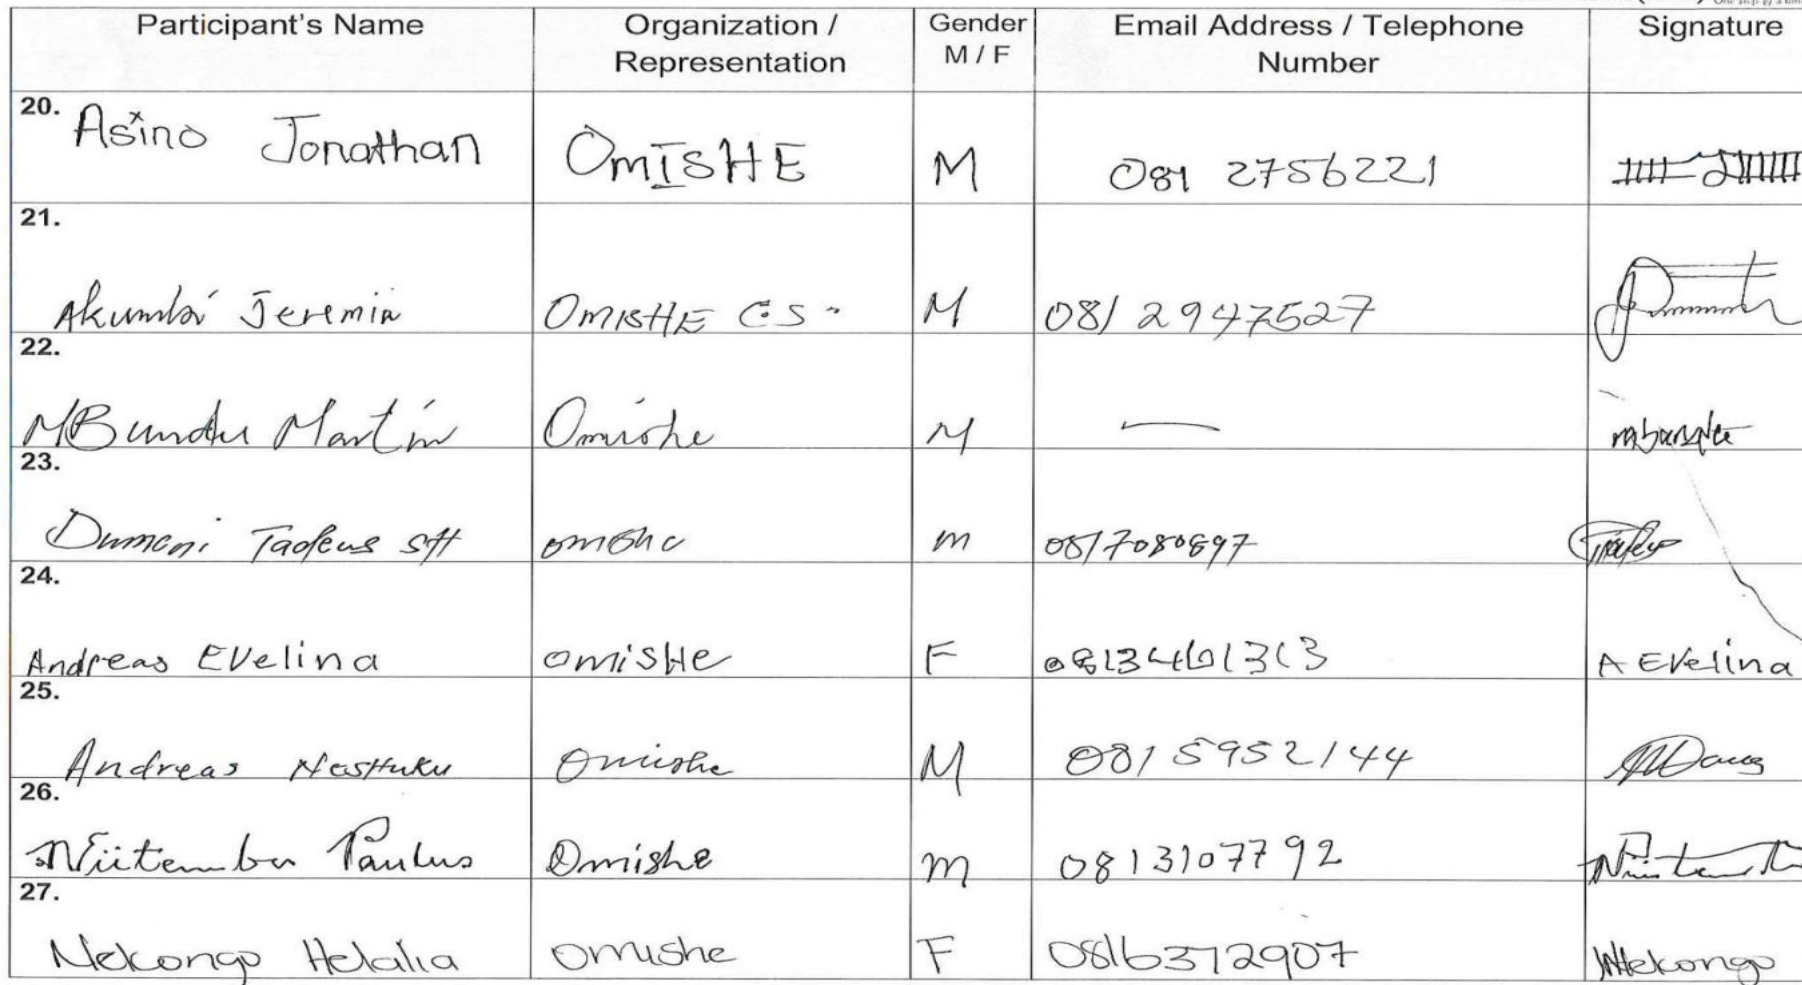 Participant's Name Organization / Representation Gender M / F Email Address / Telephone Number Signature
20. Asino Jonathan OmISHE M 081 2756221
21. Akumbi Jeremia OmISHE C.S. M 081 2947527
22. MBundu Martin Omishe M —
23. Dumeni Tadeus M 0817080897
24. Andreas EVelina omisHe F A EVelina
25. Andreas NasHuku Omishe M 0815952144
26. Niitembu Paulus Omishe m 0813107792
27. Nekongo Helalia omishe F 0816372907 Nekongo